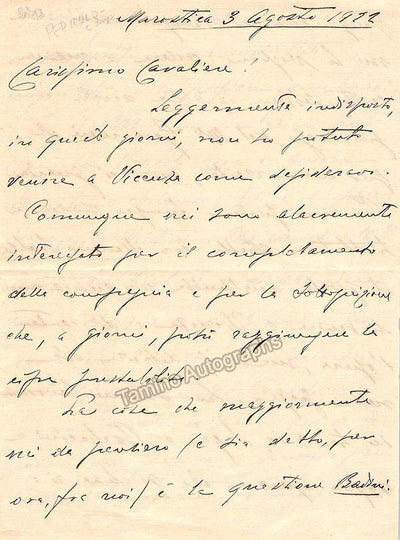 Marostica 3 Agosto 1922
Carissimo Cavaliere!
Leggermente indisposto,
in questi giorni, non ho potuto
venire a Vicenza come desideravo.
Comunque mi sono alacremente
interessato per il completamento
della compagnia e per la sottoscrizione
che, a giorni, potrà raggiungere la
cifra prestabilita.
Tamino Autographs
La cosa che maggiormente
mi dà pensiero (e sia detto, per
ora, fra noi) è la questione Badini.